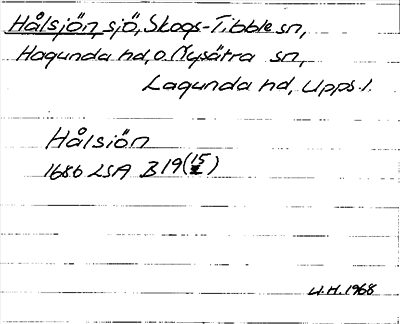 Hålsjön, sjö, Skogs-Tibble sn,
Hagunda hd, o. Nysätra sn,
Lagunda hd, Upps. l.
Hålsiön
1686 LSA B19(15/2)
U.H. 1968